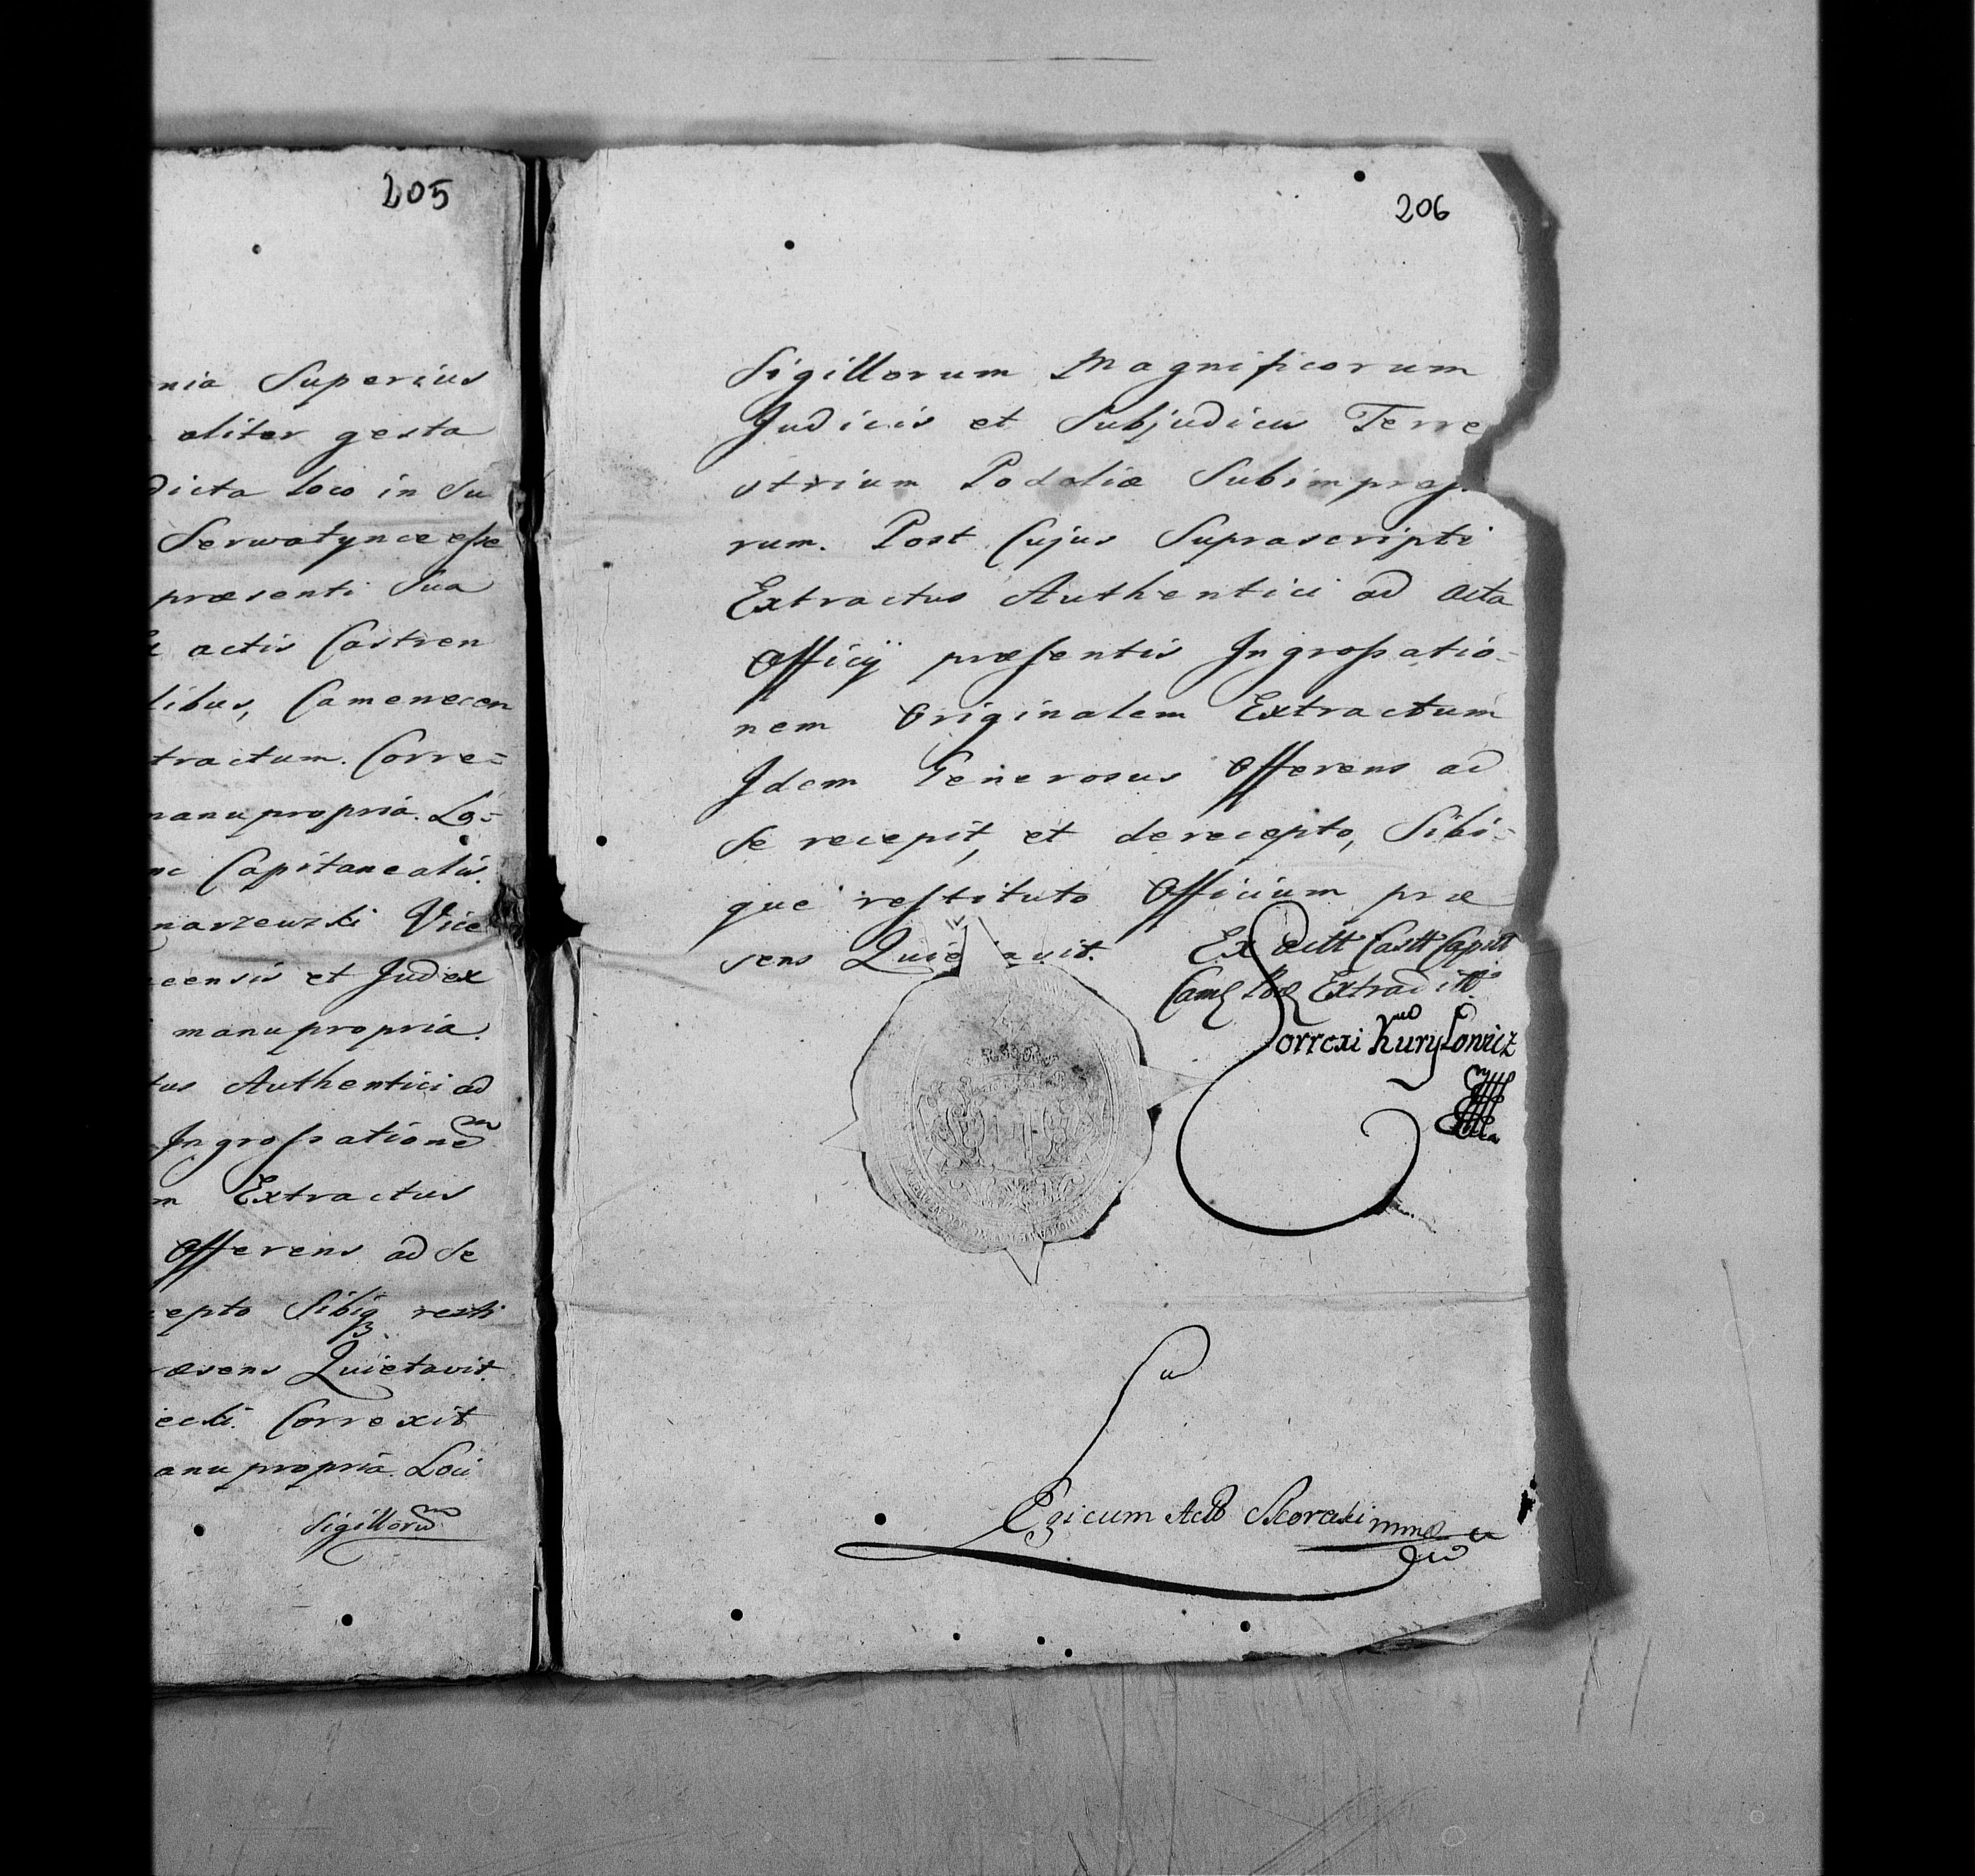 205
nia Superius
aliter gesta
dicta loco in Su
Serwatynce esse
præsenti Sua
actis Castren
libus, Camenecen
tractum. Corre=
manu propria. Lo=
nc Capitanealis.
marzewski Vice
ecensis et Judex
manu propria.
tus Authentici ad
Ingrossationem
m Extractus
Offerens ad Se
cepto Sibiq3 resti
æsens Quietavit.
ecki. Correxit
anu propria. Loci
Sigilloru̅m
206
Sigillorum Magnificorum
Judicis et Subjudicis Terre
strium Podoliæ Subimpres
rum. Post Cujus Suprascripti
Extractus Authentici ad Acta
Officij præsentis Ingrossatio=
nem Originalem Extractum
Idem Generosus Offerens ad
Se recepit, et de recepto, Sibi=
que restituto Officium præ
sens Quie avit. Ex Actt Castt Capitt
Cam Pod Extraditt
Correxi Kuryłowicz
Legicum Actt